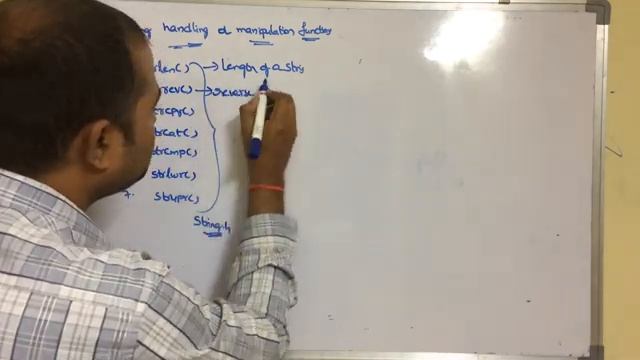 handling & manipulation functions
rlen() → Length of a Stri
rrev() → reverse
rcpy()
trcat()
trcmp()
strlwr()
7. strupr()
String.h